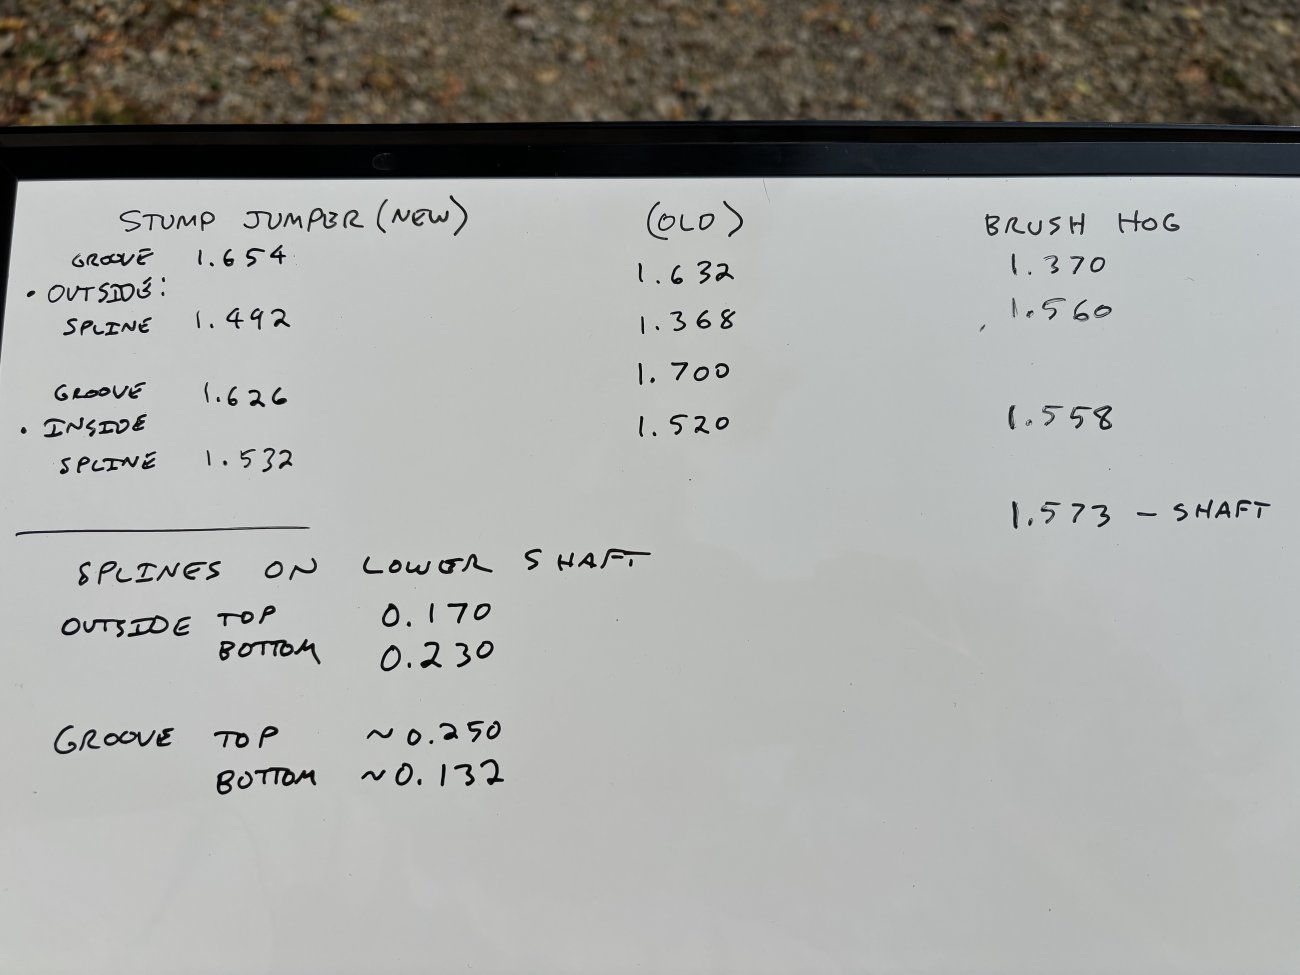 STUMP JUMPER (NEW) (OLD) BRUSH HOG
GROOVE 1.654 1.632 1.370
• OUTSIDE:
SPLINE 1.492 1.368 1.560
GROOVE 1.626 1.700
• INSIDE 1.520 1.558
SPLINE 1.532
1.573 – SHAFT
SPLINES ON LOWER SHAFT
OUTSIDE TOP 0.170
BOTTOM 0.230
GROOVE TOP ~0.250
BOTTOM ~0.132